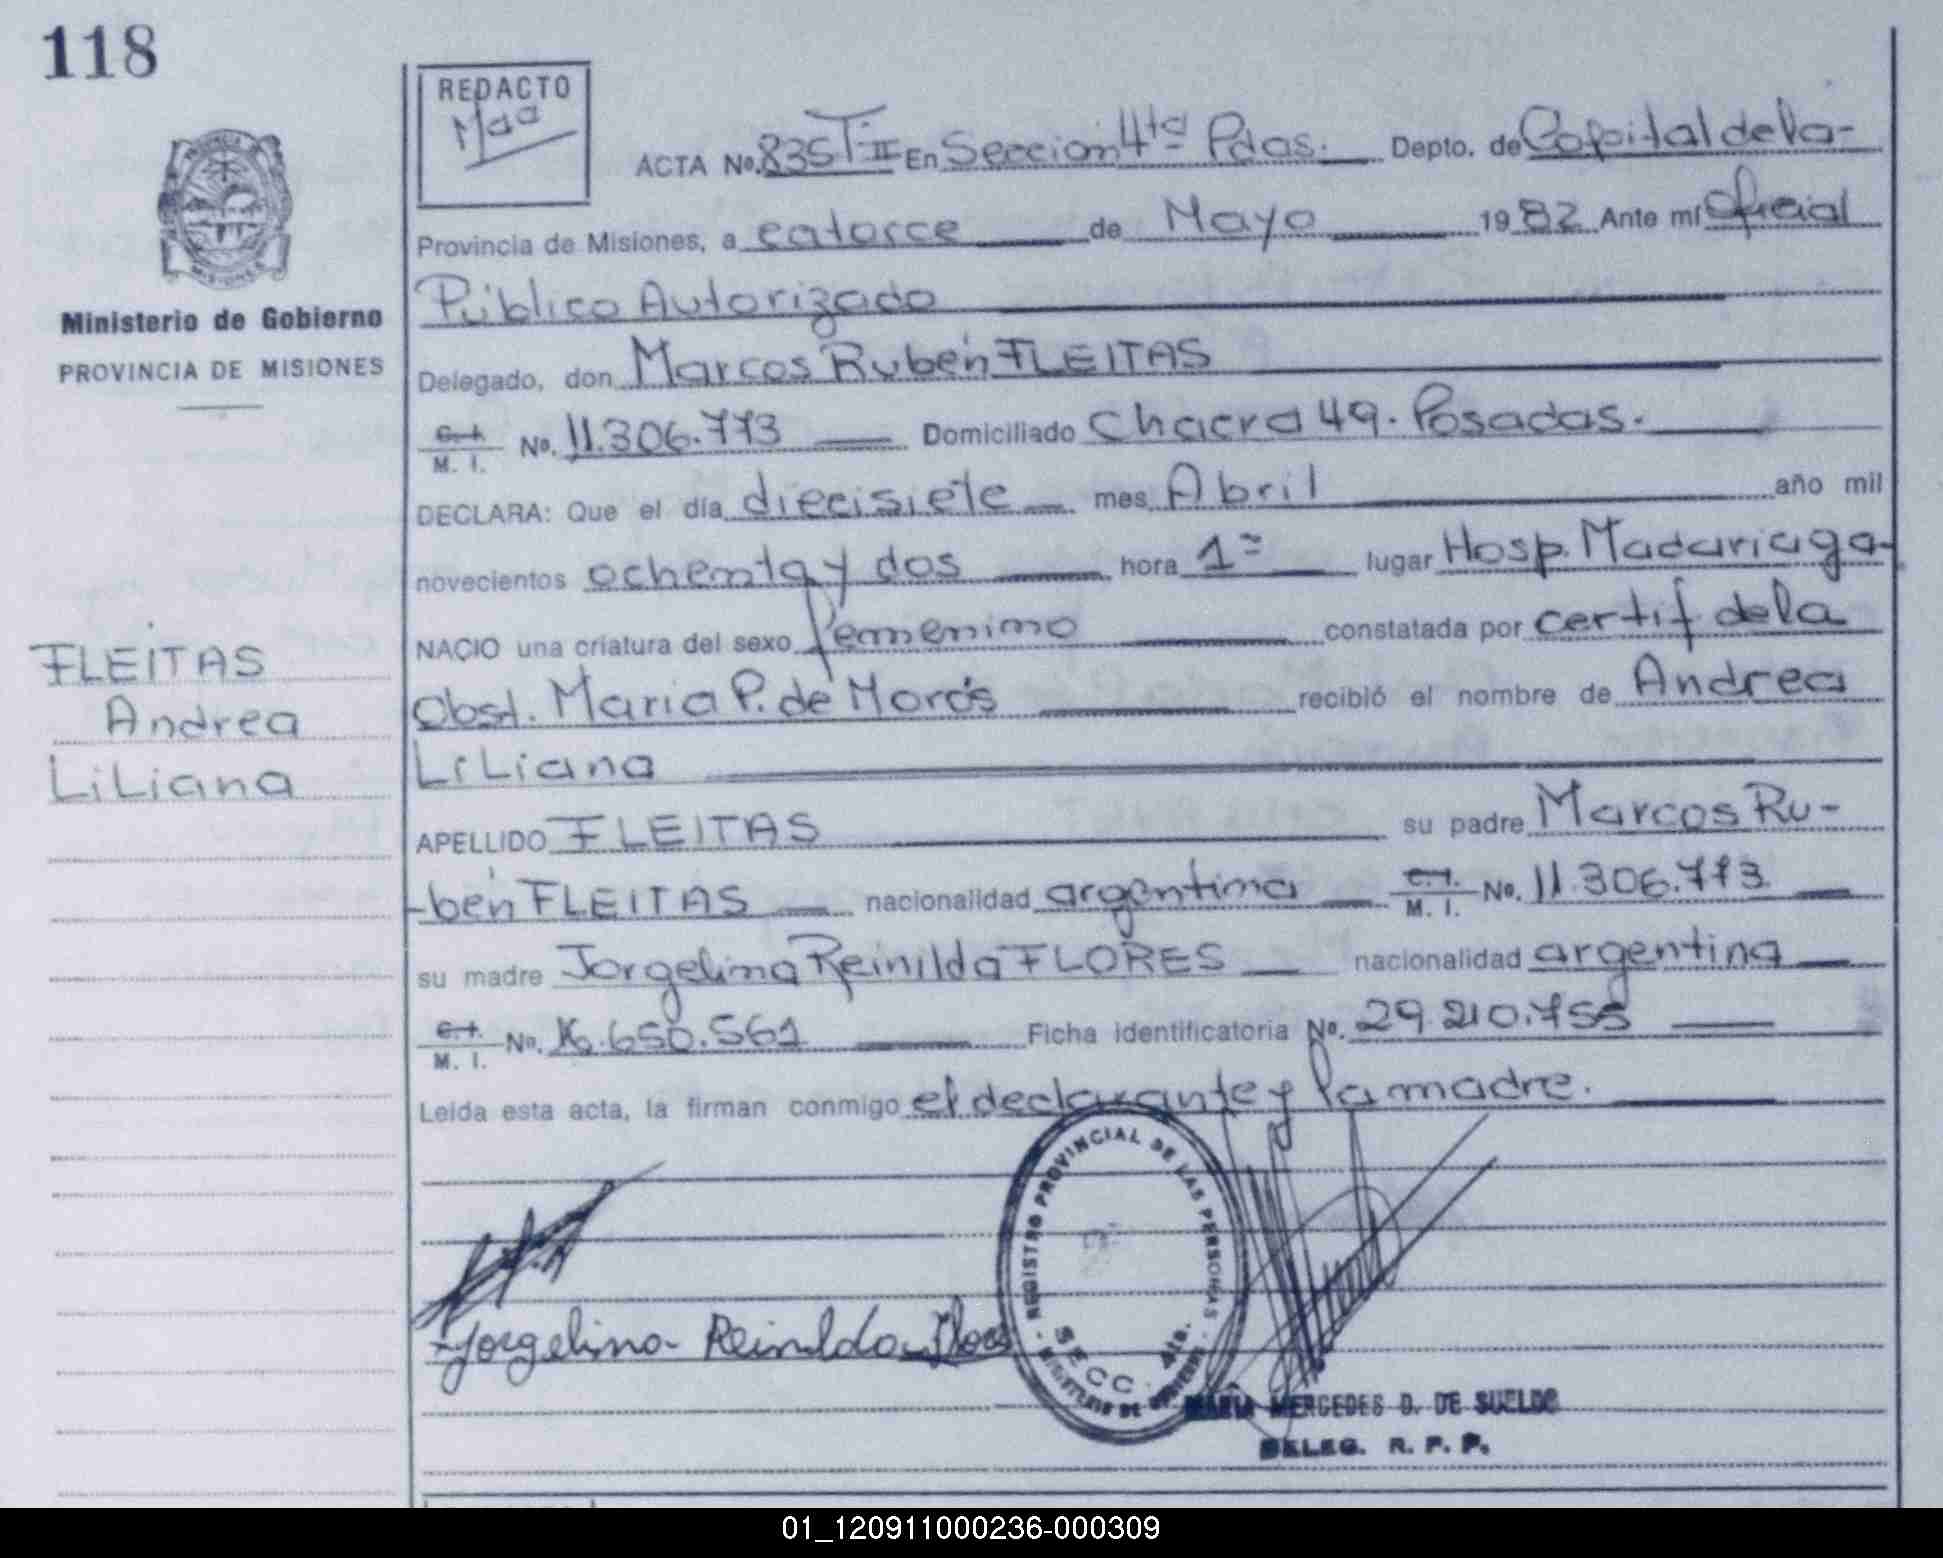 118
REDACTO
Mdd
ACTA No. 835 T-II En Sección 4ta Pdas. Depto. de Capital de la-
Provincia de Misiones, a catorce de Mayo 1982 Ante mí Oficial
Público Autorizado
Delegado, don Marcos Rubén FLEITAS
C. I. M. I. No. 11.306.773 Domiciliado Chacra 49. Posadas.
DECLARA: Que el día diecisiete mes Abril año mil
novecientos ochenta y dos hora 1= lugar Hosp. Madariaga-
NACIO una criatura del sexo femenino constatada por certif de la
Obst. Maria P. de Morós recibió el nombre de Andrea
LiLiana
APELLIDO FLEITAS su padre Marcos Ru-
-bén FLEITAS nacionalidad argentina C. I. M. I. No. 11.306.773
su madre Jorgelina Reinilda FLORES nacionalidad argentina
C. I. M. I. No. 16.650.561 Ficha identificatoria No. 29.210.755
Leída esta acta, la firman conmigo el declarante y la madre.
PROVINCIA DE MISIONES
Ministerio de Gobierno
PROVINCIA DE MISIONES
FLEITAS
Andrea
LiLiana
Jorgelina Reinilda Flores
REGISTRO PROVINCIAL DE LAS PERSONAS
SECC. 4ta.
MINISTERIO DE GOBIERNO
MARÍA MERCEDES D. DE SUELDO
DELEG. R. P. P.
01_120911000236-000309